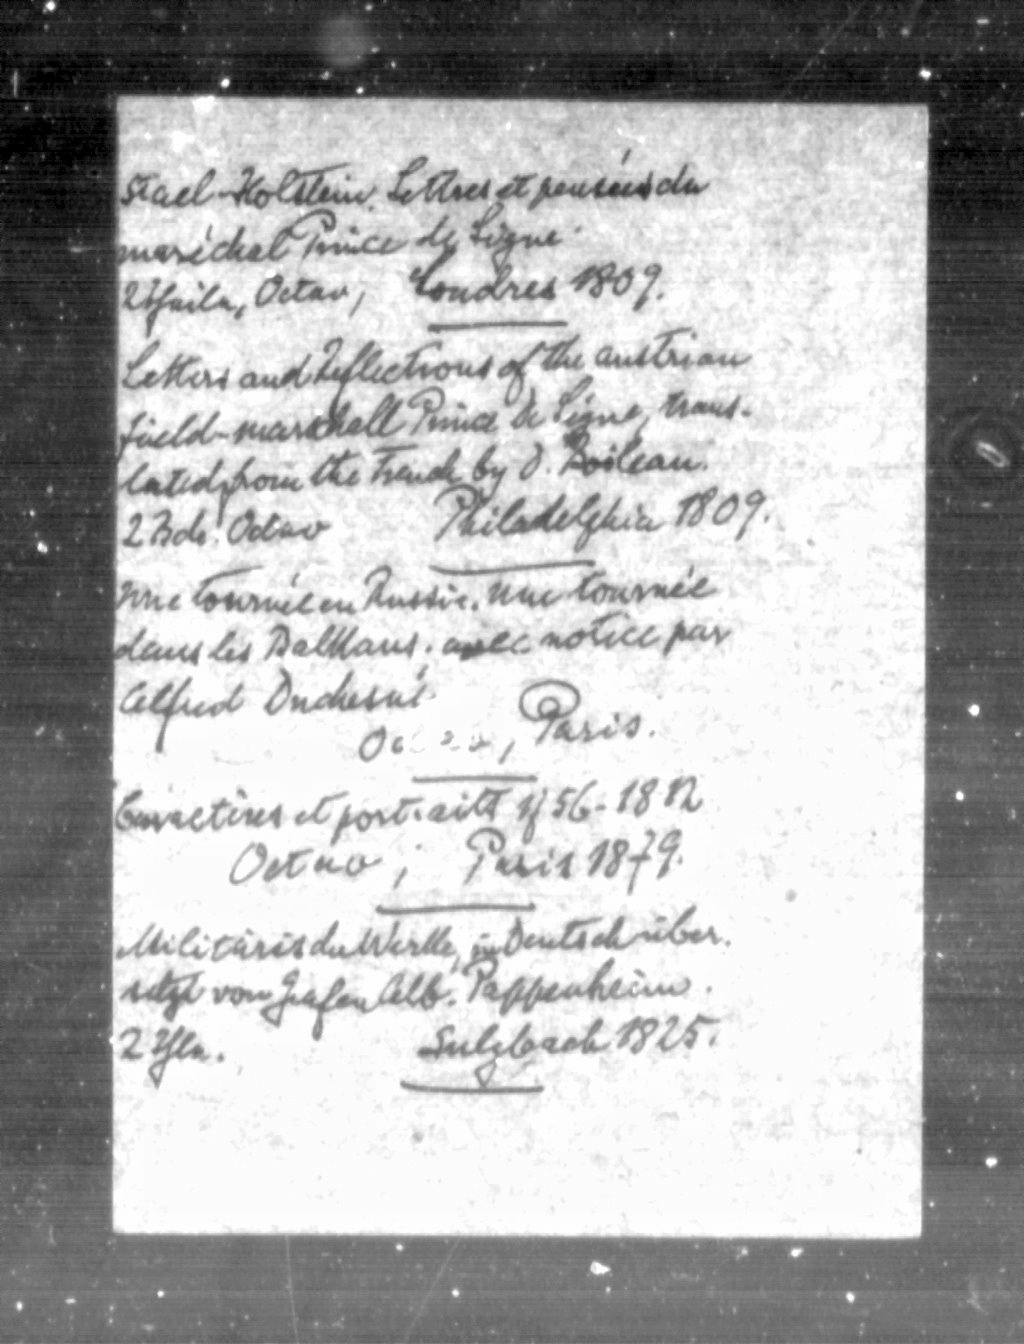 Stael-Holstein. Lettres et pensées du
maréchal Prince de Ligne.
2 Theile, Octav, Londres 1809.
Letters and Reflections of the austrian
field-marschall Prince de Ligne, trans-
lated from the French by D. Boileau.
2 Bde. Octav Philadelphia 1809.
Une tournée en Russie. Une tournée
dans les Balkans. avec notice par
Alfred Duchesné
Octav, Paris.
Caractères et portraits 1756-1812
Octav, Paris 1879.
Militärische Werke, in Deutsch über-
setzt von Grafen Alb. Pappenheim.
2 Thle. Sulzbach 1825.